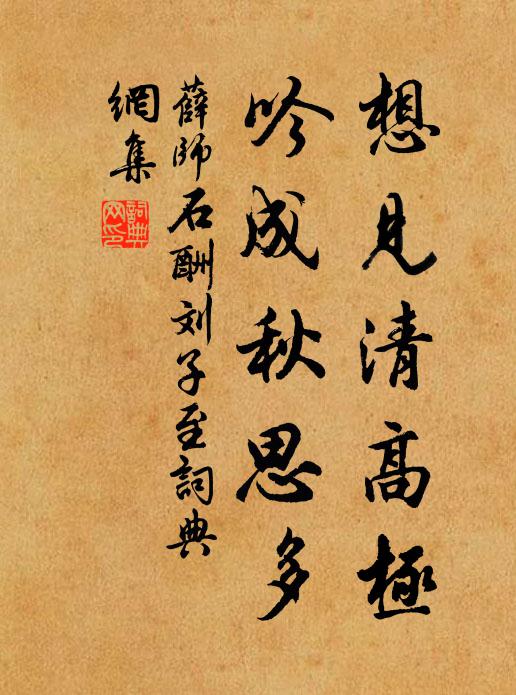 想見清高極
吟成秋思多
薛師石酬刘子至詞典
網集
詞典
网印